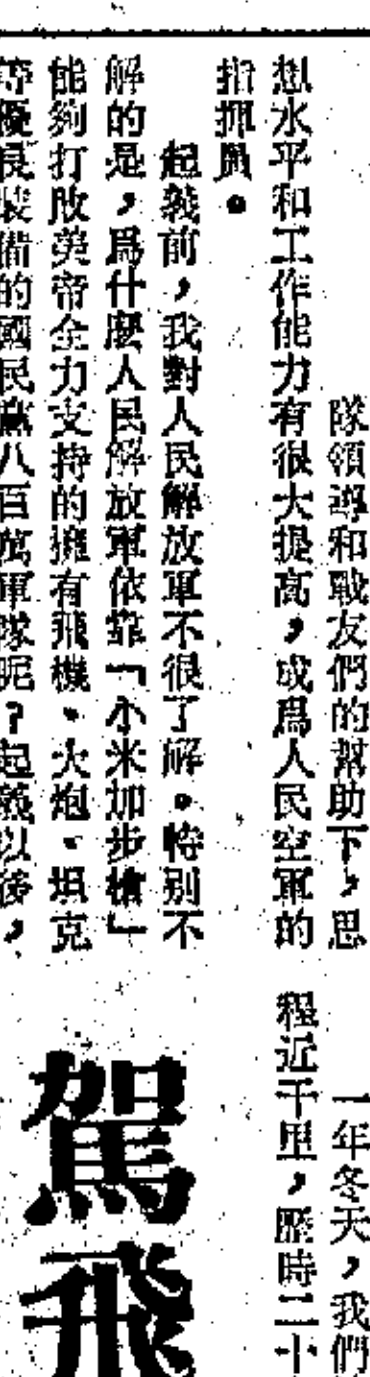 隊領導和戰友們的幫助下，思
想水平和工作能力有很大提高，成爲人民空軍的
指揮員。
起義前，我對人民解放軍不很了解。特别不
解的是，爲什麽人民解放軍依靠「小米加步槍」
能夠打敗美帝全力支持的擁有飛機、大炮、坦克
等優良裝備的國民黨八百萬軍隊呢？起義以後，
一年冬天，我們
程近千里，歷時二十
駕飛